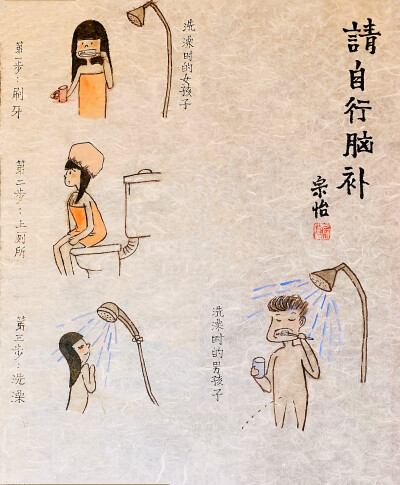 請自行脑补
宗怡
洗澡时的女孩子
第一步:刷牙
第二步:上厕所
第三步:洗澡
洗澡时的男孩子